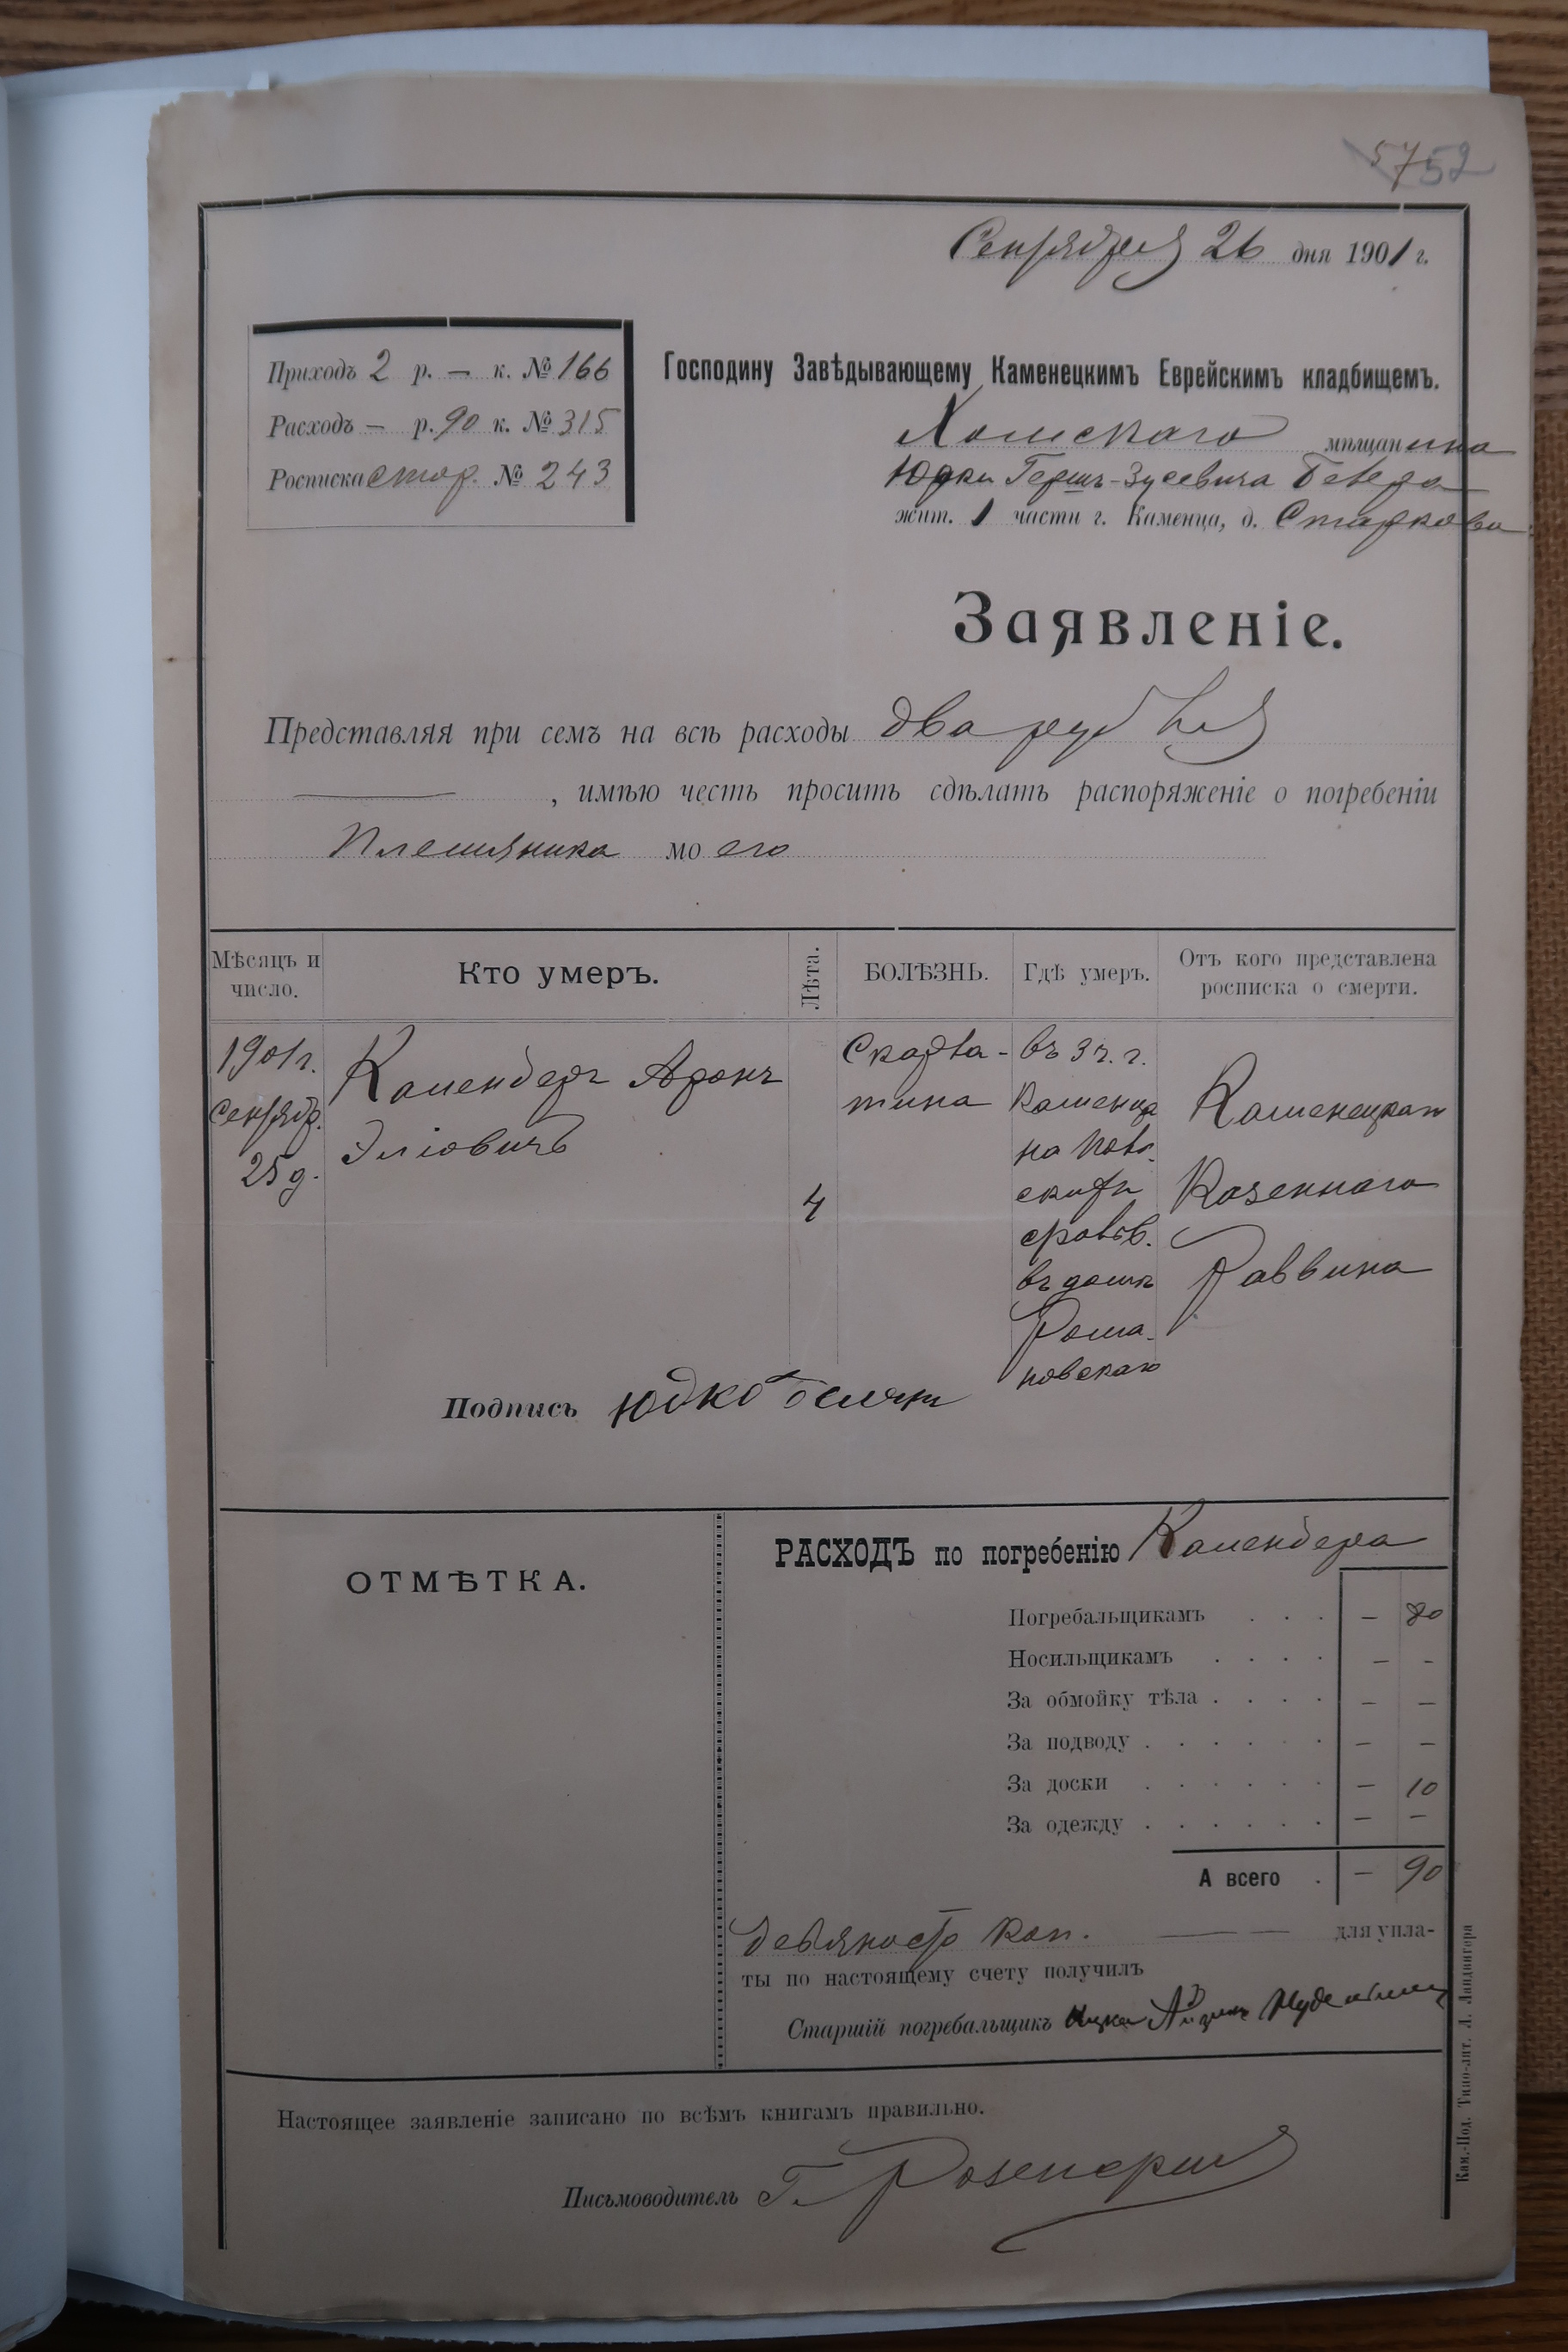 5752
Сентября 26 дня 1901 г.
Приходъ 2 р. — к. № 166
Расходъ — р. 90 к. № 315
Росписка стор. № 243
Господину Завѣдывающему Каменецкимъ Еврейскимъ кладбищемъ.
мѣщанина
Юдки Герш-Зусевича
жит. 1 части г. Каменца, д. Старкова
Заявленіе.
Представляя при семъ на всѣ расходы два рубля
——— , имѣю честь просить сдѣлать распоряженіе о погребеніи
племянника моего
Мѣсяцъ и число.
Кто умеръ.
Лѣта.
БОЛѢЗНЬ.
Гдѣ умеръ.
Отъ кого представлена росписка о смерти.
1901 г.
Сентяб.
25 д.
Камендеръ Аронъ
Эліовичъ
4
Скарла-
тина
въ 3 ч. г.
Каменца
на Ново
въ домѣ
Рома-
новскаго
Каменецкаго
Казеннаго
Раввина
Подпись Юдко
ОТМѢТКА.
РАСХОДЪ по погребенію Камендера
Погребальщикамъ . . . — 80
Носильщикамъ . . . . — -
За обмойку тѣла . . . . — —
За подводу . . . . . — —
За доски . . . . . — 10
За одежду . . . . . — —
А всего . — 90
девяносто коп. — — для упла-
ты по настоящему счету получилъ
Старшій погребальщикъ Айзикъ
Настоящее заявленіе записано по всѣмъ книгамъ правильно.
Письмоводитель Г.
Кам.-Под. Типо-лит. Л. Ландвигера